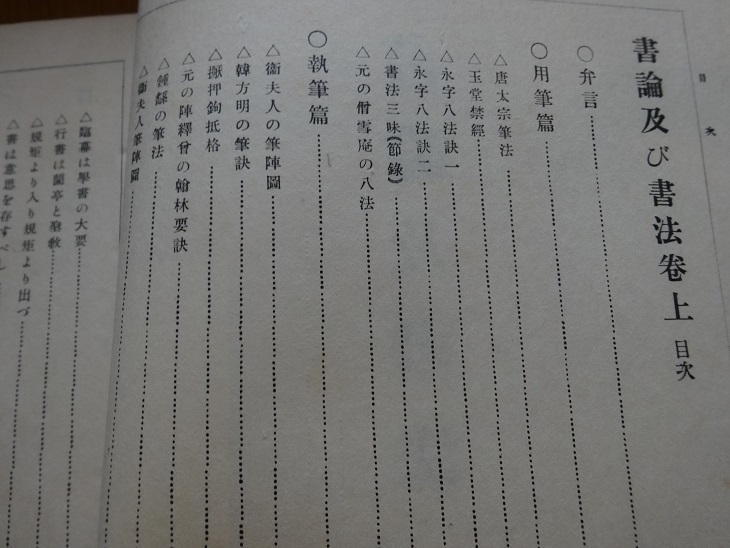 目次
書論及び書法卷上 目次
○弁言
○用筆篇
△唐太宗筆法
△玉堂禁經
△永字八法訣一
△永字八法訣二
△書法三昧(節錄)
△元の僧雪庵の八法
○執筆篇
△衞夫人の筆陣圖
△韓方明の筆訣
△擫押鉤抵格
△元の陳繹曾の翰林要訣
△鍾繇の筆法
△衞夫人筆陣圖
△臨摹は學書の大要
△行書は蘭亭と聖敎
△規矩より入り規矩より出づ
△書は意思を存すべし